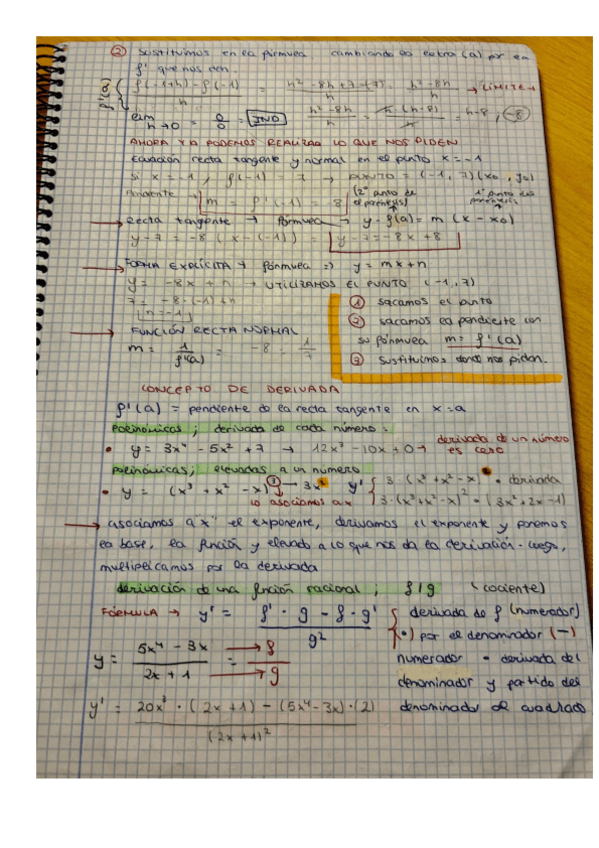 ② sustituimos en la fórmula cambiando la letra (a) por la
f' que nos den.
f'(a) { f(-1+h) - f(-1) / h = h² - 8h + 7 - (7) / h = h² - 8h / h → LÍMITE →
lim h→0 = 0/0 = IND h² - 8h / h = h · (h-8) / h = h-8, -8
AHORA YA PODEMOS REALIZAR LO QUE NOS PIDEN
Ecuación recta tangente y normal en el punto x = -1
si x = -1, f(-1) = 7 → PUNTO = (-1, 7) (x0, y0)
Pendiente m = f'(-1) = 8 (2º punto del paréntesis) 1º punto del paréntesis
→ Recta tangente → Fórmula → y - f(a) = m (x - x0)
y - 7 = -8 (x - (-1)) = y - 7 = -8x + 8
→ FORMA EXPLÍCITA y fórmula => y = mx + n
y = -8x + n → UTILIZAMOS EL PUNTO (-1, 7)
7 = -8 · (-1) + n
n = -1
① sacamos el punto
② sacamos la pendiente con
su fórmula m = f'(a)
③ sustituimos donde nos pidan.
→ FUNCIÓN RECTA NORMAL
m = 1 / f'(a) = -8 = 1/7
CONCEPTO DE DERIVADA
f'(a) = pendiente de la recta tangente en x = a
polinómicas; derivada de cada número =
• y = 3x⁴ - 5x² + 7 → 12x³ - 10x + 0 → derivada de un número
es cero
polinómicas; elevadas a un número
• y = (x³ + x² - x)³ → 3x² y' { 3 · (x³ + x² - x)² • derivada
lo asociamos a x 3 · (x³ + x² - x)² • (3x² + 2x - 1)
→ asociamos a "x" el exponente, derivamos el exponente y ponemos
la base, la función y elevado a lo que nos da la derivación. Luego,
multiplicamos por la derivada
derivación de una función racional; f/g (cociente)
FÓRMULA → y' = f' · g - f · g' / g² { derivada de f (numerador)
(•) por el denominador (-)
y = 5x⁴ - 3x / 2x + 1 = → f / → g numerador • derivada del
denominador y partido del
y' = 20x³ · (2x + 1) - (5x⁴ - 3x) · (2) / (2x + 1)² denominador al cuadrado